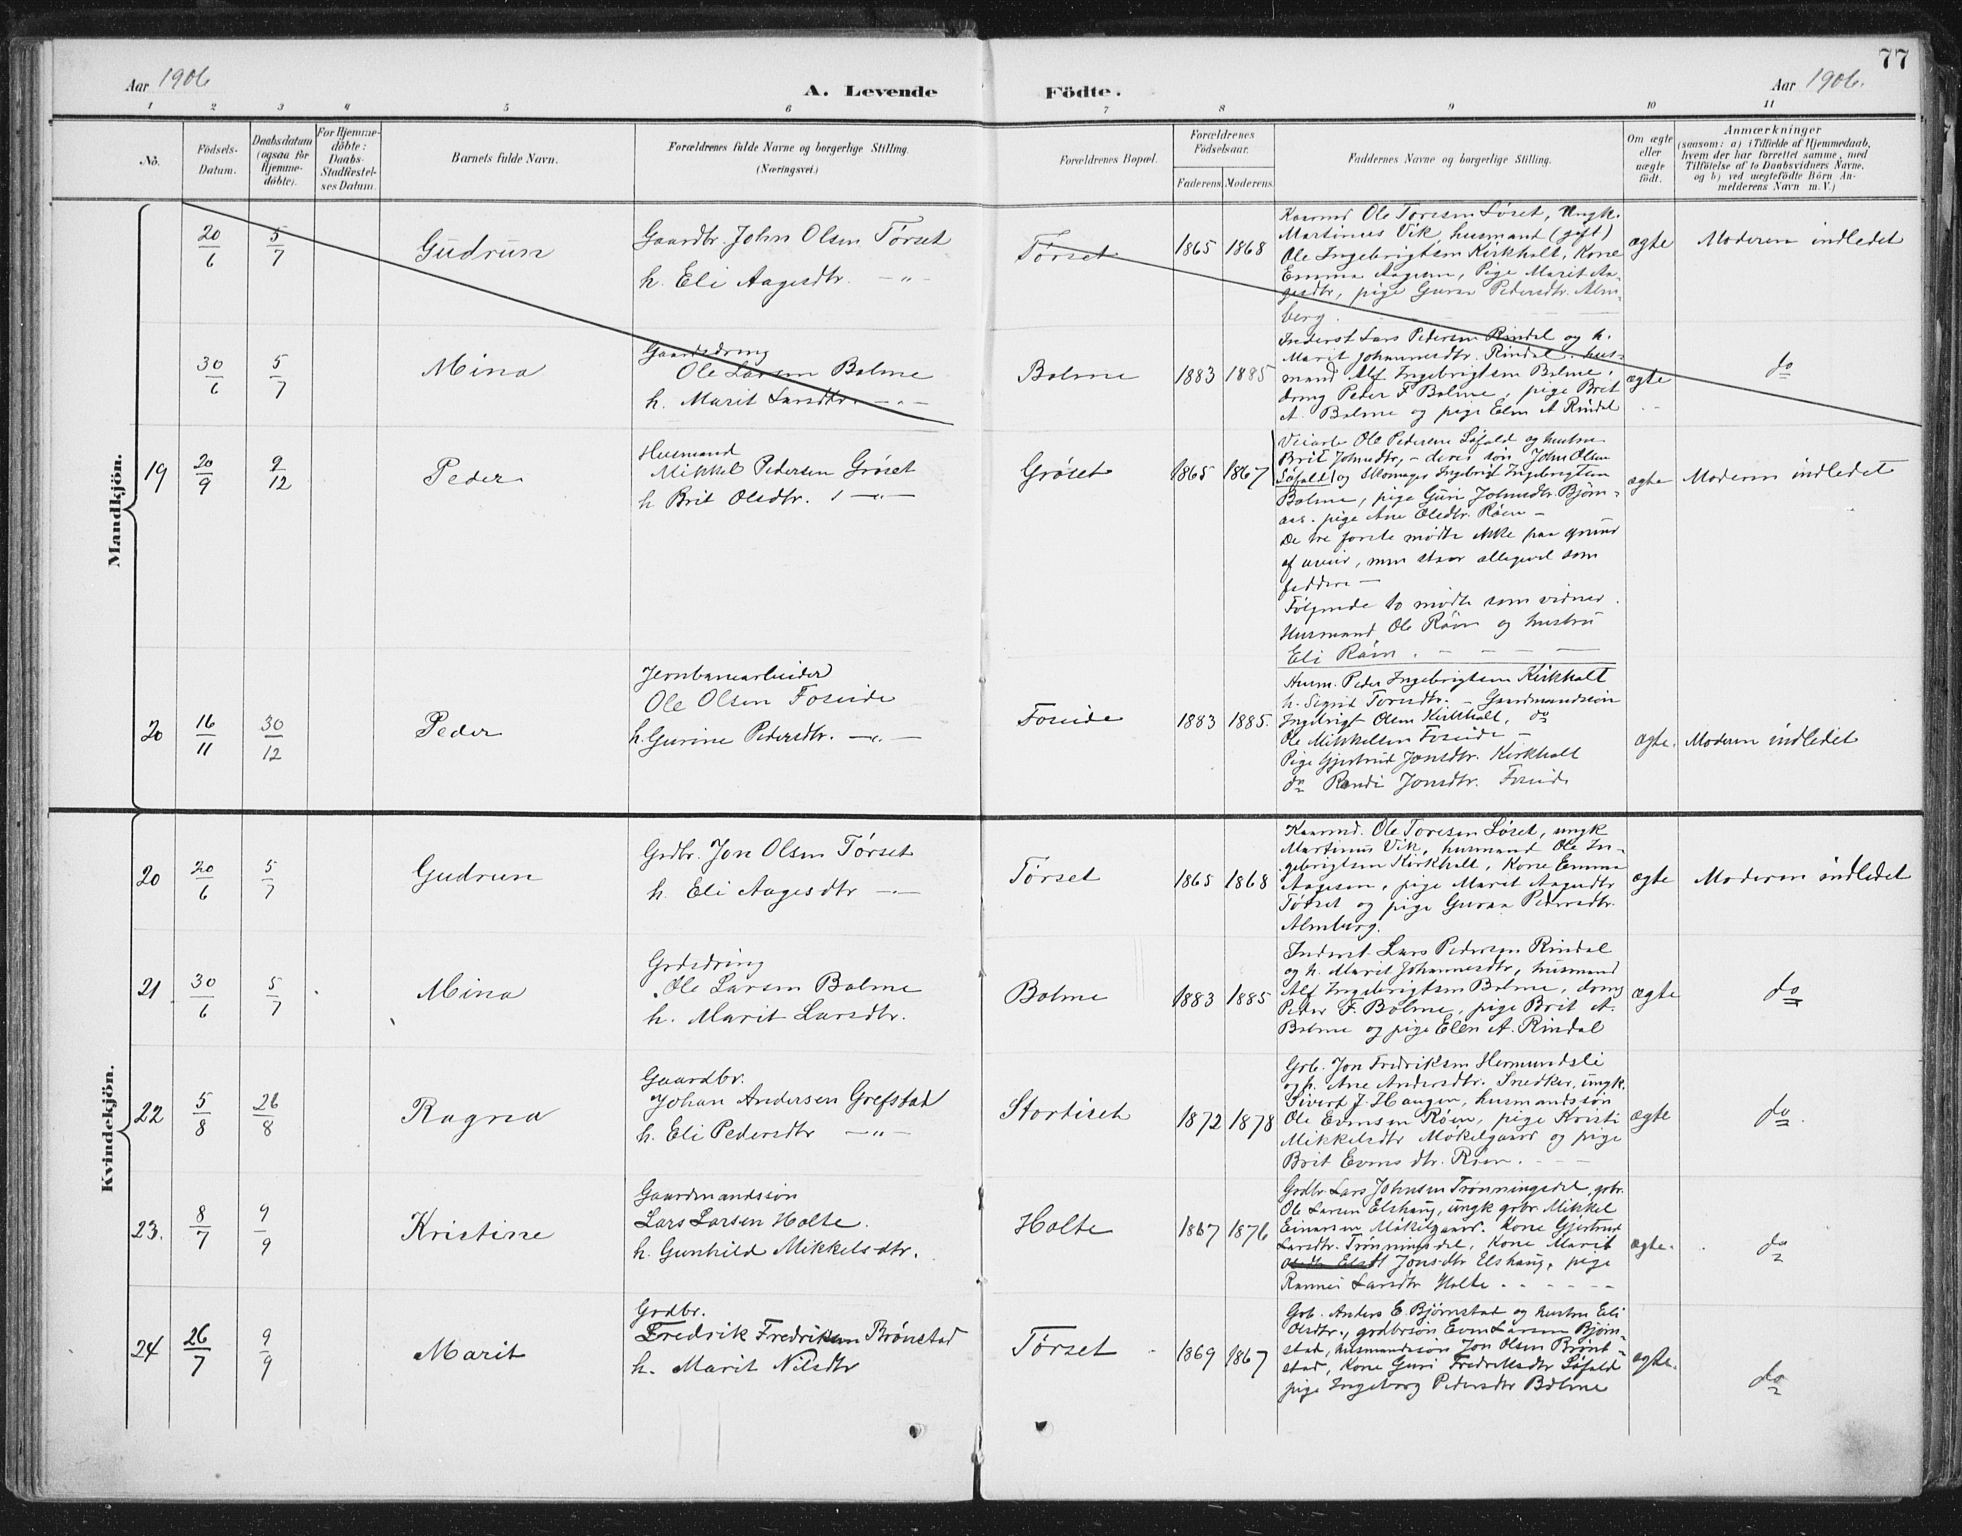 77
Aar 1906
A. Levende Födte.
Aar 1906.
1 2 3 4 5 6 7 8 9 10 11
No.
Födsels-Datum.
Daabsdatum (ogsaa for Hjemme-döbte).
For Hjemme-döbte: Daabs-Stadfæstel-ses Datum.
Barnets fulde Navn.
Forældrenes fulde Navne og borgerlige Stilling.
(Næringsvei.)
Forældrenes Bopæl.
Forældrenes Födselsaar.
Faderens. Moderens.
Faddernes Navne og borgerlige Stilling.
Om ægte eller uægte födt.
Anmærkninger
(saasom: a) i Tilfælde af Hjemmedaab,
hvem der har forrettet samme, med
Tilföielse af to Daabsvidners Navne,
og b) ved uægtefödte Börn An-
melderens Navn m. V.)
Mandkjön.
20/6 5/7 Gudrun
Gaardbr. John Olsen Tørset
h. Eli Aagesdtr. - „ -
Tørset 1865 1868
Kaarmd Ole Toresen Løset, Ungk.
Martinus Vik, husmand (gift)
Ole Ingebrigtsen Kirkholt, Kone
Emma Aagesen, Pige Marit Aa-
gesdtr, pige Guraa Pedersdtr. Alm-
berg.
ægte Moderen indledet
30/6 5/7 Mina
Gaardsdreng
Ole Larsen Bolme
h. Marit Larsdtr. - „ -
Bolme 1883 1885
Inderst Lars Pedersen Rindal og h.
Marit Johannesdtr. Rindal, hus-
mand Alf Ingebrigtsen Bolme,
dreng Peder F Bolme, pige Brit
A. Bolme og pige Elen A Rindal
ægte do
19 20/9 9/12 Peder
Husmand
Mikkel Pedersen Grøset
h Brit Olsdtr.
Grøset 1865 1867
Ole Pedersen Løfald og hustru
Brit Johnsdtr, - deres søn John Olsen
Løfald og Ingebrigt Ingebrigtsen
Bolme, pige Guri Johnsdtr. Bjørn-
aas. pige Ane Olsdtr. Røen -
De tre første mødte ikke paa grund
af uveir, men staar allegevel som
faddere -
Følgende to mødte som vidner.
Husmand Ole Røen og hustru
Eli Røen.
ægte Moderen indledet
20 16/11 30/12 Peder
Jernbanearbeider
Ole Olsen Foseide
h. Gurine Pedersdtr. - „ -
Foseide 1883 1885.
Husm. Peder Ingebrigtsen Kirkholt
h. Sigrid Toresdtr. - Gaardmandssøn
Ingebrigt Olsen Kirkholt, do
Ole Mikkelsen Foseide -
Pige Gjertrud Jonsdtr. Kirkholt
do Randi Jonsdtr. Foseide
ægte. Moderen indledet
Kvindekjön.
20 20/6 5/7 Gudrun
Grdbr. Jon Olsen Tørset
h. Eli Aagesdtr - „ -
Tørset 1865 1868
Kaarmd. Ole Toresen Løset, ungk
Martinus Vik, husmand Ole In-
gebrigtsen Kirkholt, Kone Emma
Aagesen, pige Marit Aagesdtr
Tørset og pige Guraa Pedersdtr.
Almberg.
ægte Moderen indledet
21 30/6 5/7 Mina
Grdsdreng
Ole Larsen Bolme
h. Marit Larsdtr.
Bolme 1883 1885
Inderst Lars Pedersen Rindal
og h. Marit Johannesdtr, husmand
Alf Ingebrigtsen Bolme, dreng
Peder F. Bolme, pige Brit A.
Bolme og pige Elen A. Rindal
ægte do
22 5/8 26/8 Ragna
Gaardbr.
Johan Andersen Grefstad
h. Eli Pedersdtr - „ -
Stortiset 1872 1878
Grb. Jon Fredriksen Hermundsli
og h. Ane Andersdtr. Snedker, ungk.
Sivert J. Haugen, husmandssøn
Ole Evensen Røen, pige Kristi
Mikkelsdtr Møkelgaard og pige
Brit Evensdtr. Røen.
ægte do.
23. 8/7 9/9 Kristine
Gaardmandssøn
Lars Larsen Holte.
h. Gunhild Mikkelsdtr.
Holte 1867 1876
Grdbr. Lars Johnsen Trønningsdel, grbr.
Ole Larsen Elshaug, ungk grbr. Mikkel
Einarsen Møkelgaard. Kone Gjertrud
Larsdtr. Trønningsdel, Kone Marit
Jonsdtr Elshaug, pige
Larsdtr Holte
ægte. do
24 26/7 9/9 Marit
Grdbr.
Fredrik Fredriksen Brønstad
h. Marit Nilsdtr
Tørset 1869 1867
Grb. Anders E. Bjørnstad og hustru Eli
Olsdtr., grdbrsøn Even Larsen Bjørn-
stad, husmandssøn Jon Olsen Brøn-
stad, Kone Guri Fredriksdtr Løfald
pige Ingeborg Pedersdtr Bolme
ægte. do